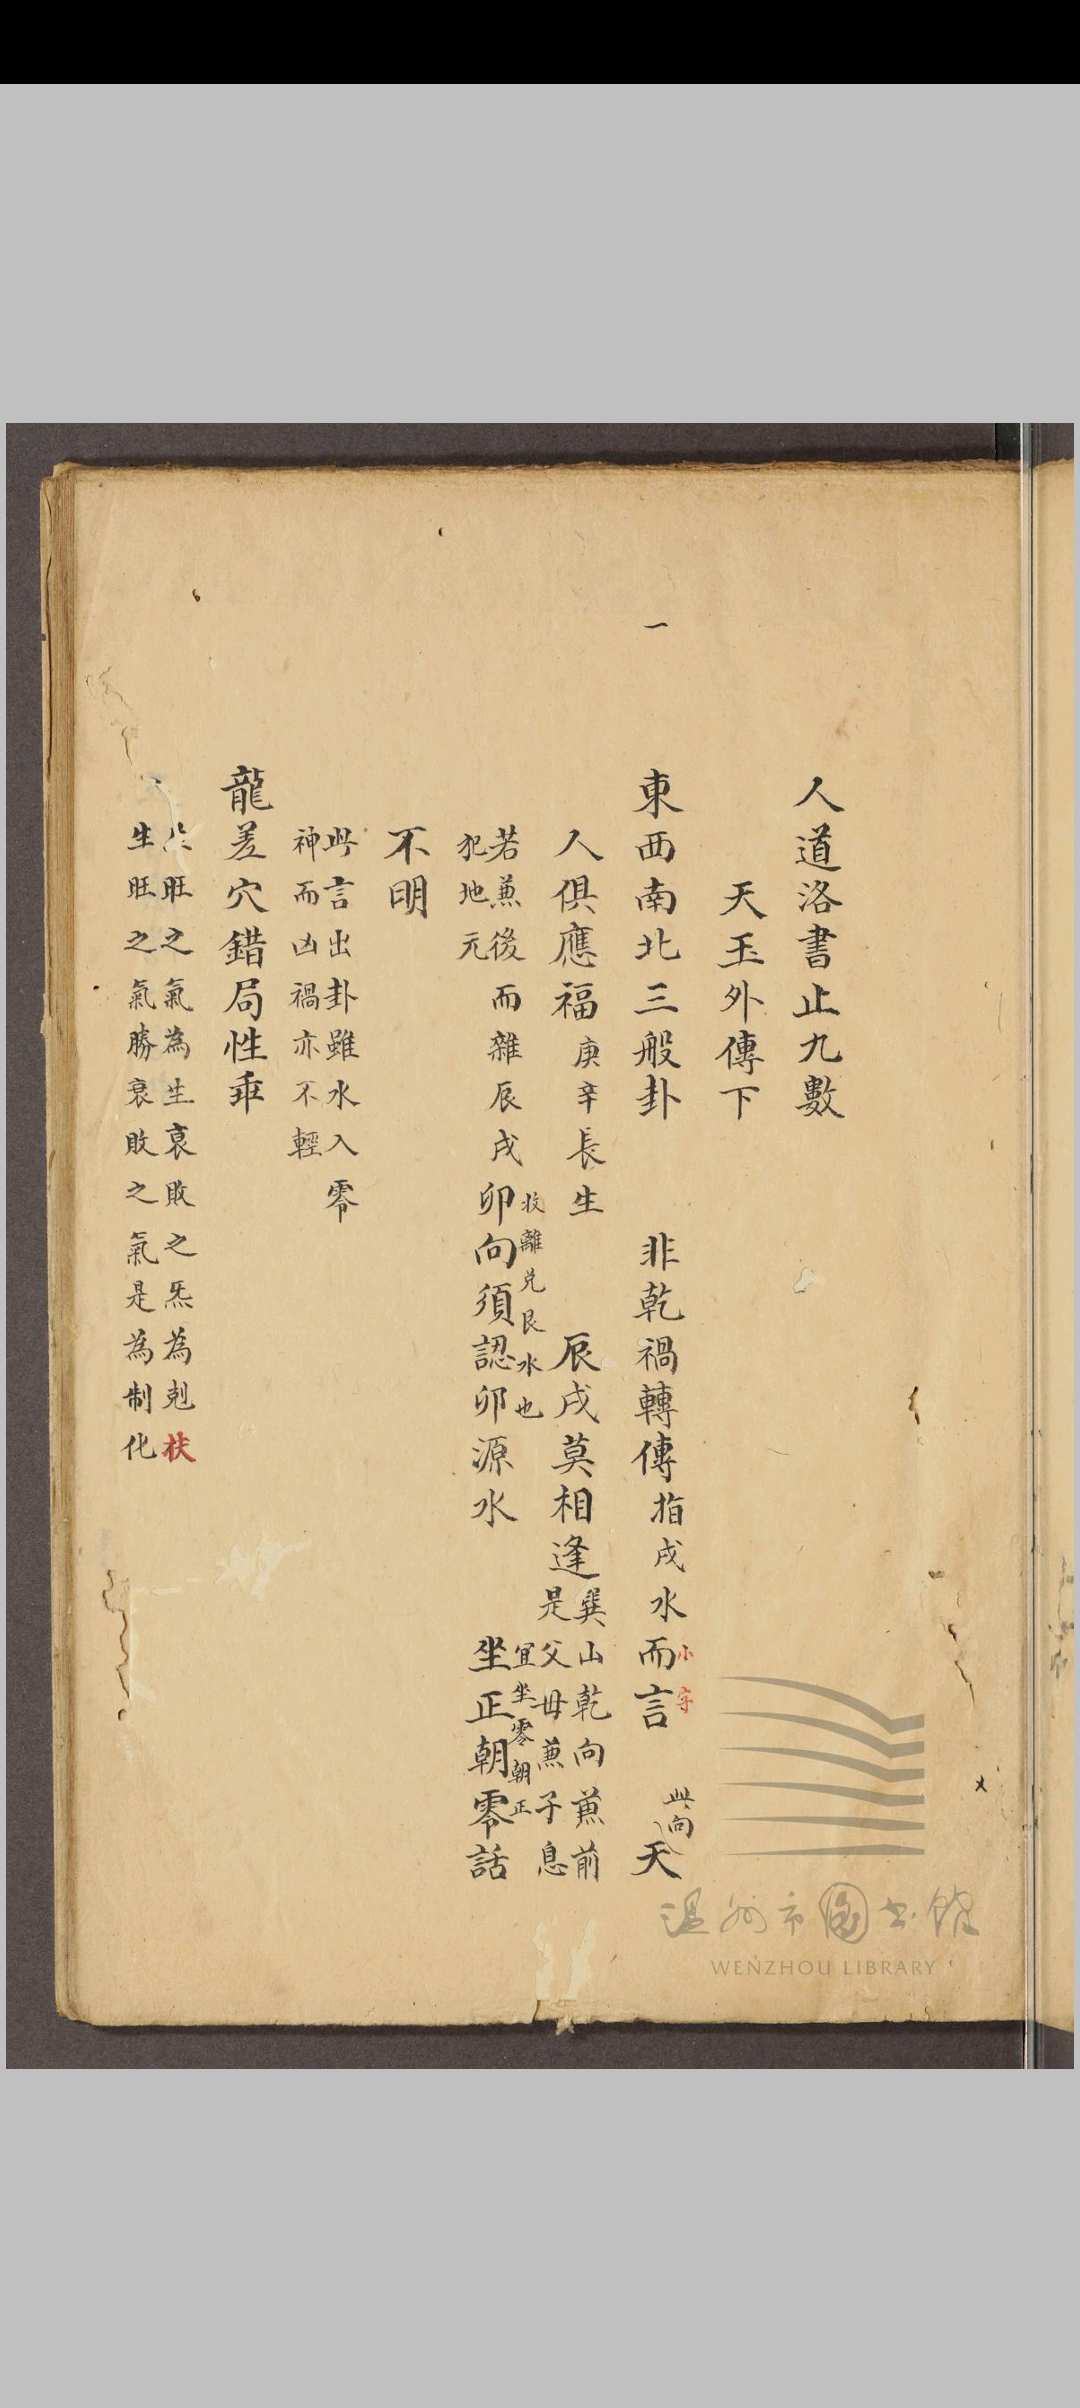 人道洛書止九數
天玉外傳下
一
東西南北三般卦 非乾禍轉傳指戌水而言 天
小字
此向
人俱應福庚辛長生 辰戌莫相逢
巽山乾向兼前
是父母兼子息
若兼後而雜辰戌
犯地元
收離兌艮水也
卯向須認卯源水 坐正朝零話
宜坐零朝正
不明
此言出卦雖水入零
神而凶禍亦不輕
龍差穴錯局性乖
旺之氣為生衰敗之炁為剋扶
生旺之氣勝衰敗之氣是為制化
温州市圖書館
WENZHOU LIBRARY